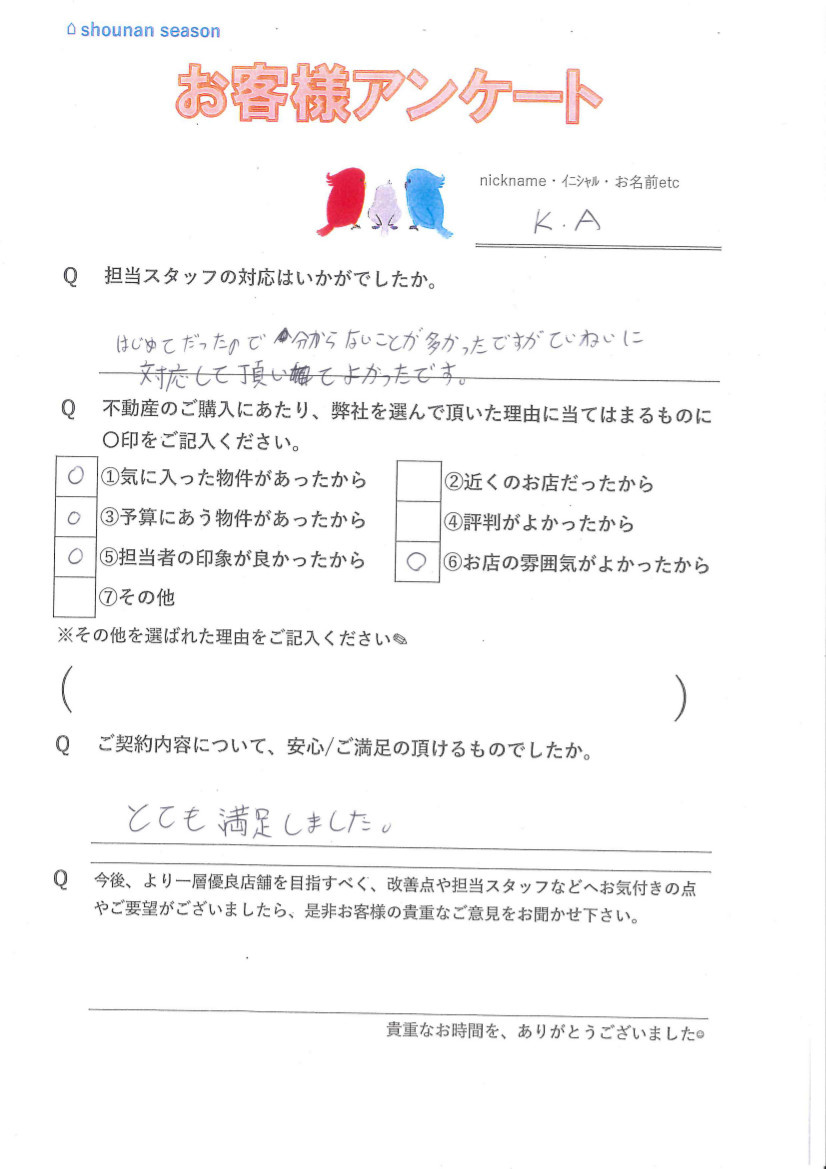 shounan season
お客様アンケート
nickname・イニシャル・お名前etc
K.A
Q 担当スタッフの対応はいかがでしたか。
はじめてだったので分からないことが多かったですがていねいに
対応して頂いてよかったです。
Q 不動産のご購入にあたり、弊社を選んで頂いた理由に当てはまるものに
〇印をご記入ください。
○ ①気に入った物件があったから ②近くのお店だったから
○ ③予算にあう物件があったから ④評判がよかったから
○ ⑤担当者の印象が良かったから ○ ⑥お店の雰囲気がよかったから
⑦その他
※その他を選ばれた理由をご記入ください✎
( )
Q ご契約内容について、安心/ご満足の頂けるものでしたか。
とても満足しました。
Q 今後、より一層優良店舗を目指すべく、改善点や担当スタッフなどへお気付きの点
やご要望がございましたら、是非お客様の貴重なご意見をお聞かせ下さい。
貴重なお時間を、ありがとうございました☺